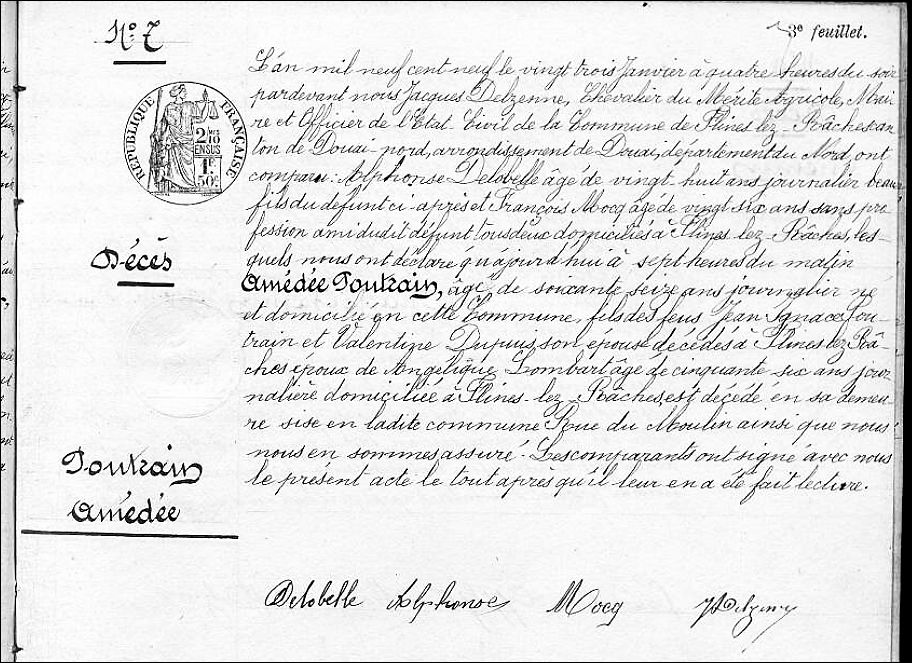 N° 7
3e feuillet.
L'an mil neuf cent neuf le vingt trois Janvier à quatre heures du soir
pardevant nous Jacques Delzenne, Chevalier du Mérite Agricole, Mai-
re et Officier de l'Etat-Civil de la Commune de Flines lez-Râches can
ton de Douai-nord, arrondissement de Douai, département du Nord, ont
comparu: Alphonse Delobelle âgé de vingt huit ans journalier beau
fils du défunt ci-après et François Mocq âgé de vingt six ans sans pro
fession ami dudit défunt tous deux domiciliés à Flines lez-Râches, les-
quels nous ont déclaré qu'ajourd'hui à sept heures du matin
Amédée Poutrain, âgé de soixante seize ans journalier né
et domicilié en cette Commune, fils des feus Jean Ignace Pou-
train et Valentine Dupuis, son épouse décédés à Flines lez Râ-
ches époux de Angélique Lombart âgé de cinquante-six ans jour
nalière domiciliée à Flines-lez-Râches, est décédé en sa demeu
re sise en ladite commune Rue du Moulin ainsi que nous
nous en sommes assuré. Les comparants ont signé avec nous
le présent acte le tout après qu'il leur en a été fait lecture.
RÉPUBLIQUE FRANÇAISE
2/10 MES
EN SUS
1F
50c
Décès
Poutrain
Amédée
Delobelle Alphonse Mocq JDelzenne